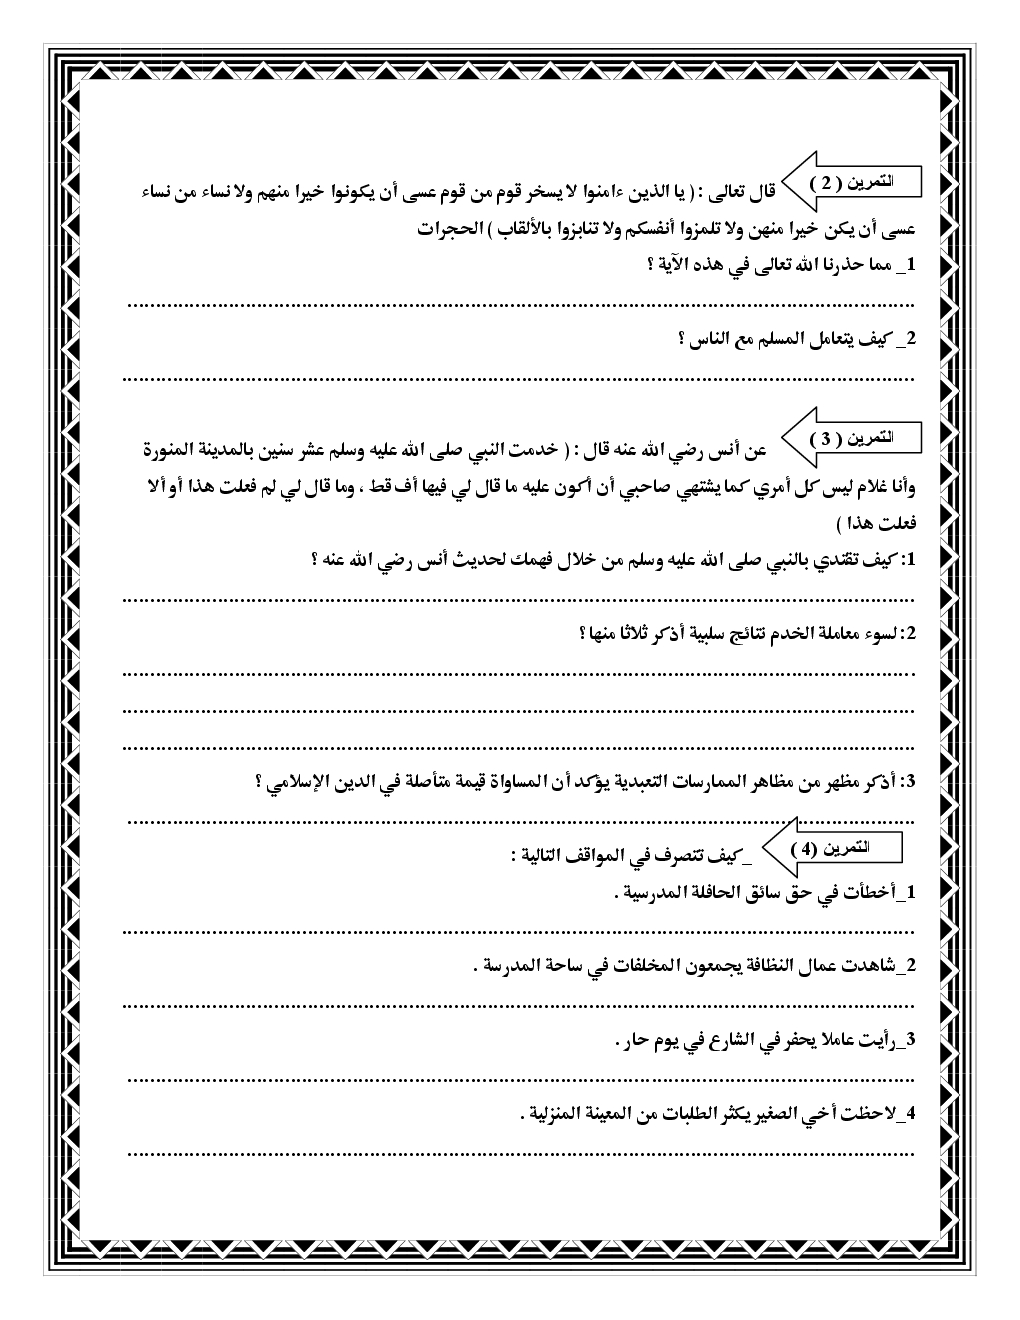 التمرين ( 2 )
قال تعالى : ( يا الذين ءامنوا لا يسخر قوم من قوم عسى أن يكونوا خيرا منهم ولا نساء من نساء
عسى أن يكن خيرا منهن ولا تلمزوا أنفسكم ولا تنابزوا بالألقاب ) الحجرات
1_ مما حذرنا الله تعالى في هذه الآية ؟
................................................................................
2_ كيف يتعامل المسلم مع الناس ؟
................................................................................
التمرين ( 3 )
عن أنس رضي الله عنه قال : ( خدمت النبي صلى الله عليه وسلم عشر سنين بالمدينة المنورة
وأنا غلام ليس كل أمري كما يشتهي صاحبي أن أكون عليه ما قال لي فيها أف قط ، وما قال لي لم فعلت هذا أو ألا
فعلت هذا )
1: كيف تقتدي بالنبي صلى الله عليه وسلم من خلال فهمك لحديث أنس رضي الله عنه ؟
................................................................................
2: لسوء معاملة الخدم نتائج سلبية أذكر ثلاثا منها ؟
................................................................................
................................................................................
................................................................................
3: أذكر مظهر من مظاهر الممارسات التعبدية يؤكد أن المساواة قيمة متأصلة في الدين الإسلامي ؟
................................................................................
التمرين ( 4 )
_كيف تتصرف في المواقف التالية :
1_أخطأت في حق سائق الحافلة المدرسية .
................................................................................
2_شاهدت عمال النظافة يجمعون المخلفات في ساحة المدرسة .
................................................................................
3_رأيت عاملا يحفر في الشارع في يوم حار .
................................................................................
4_لاحظت أخي الصغير يكثر الطلبات من المعينة المنزلية .
................................................................................